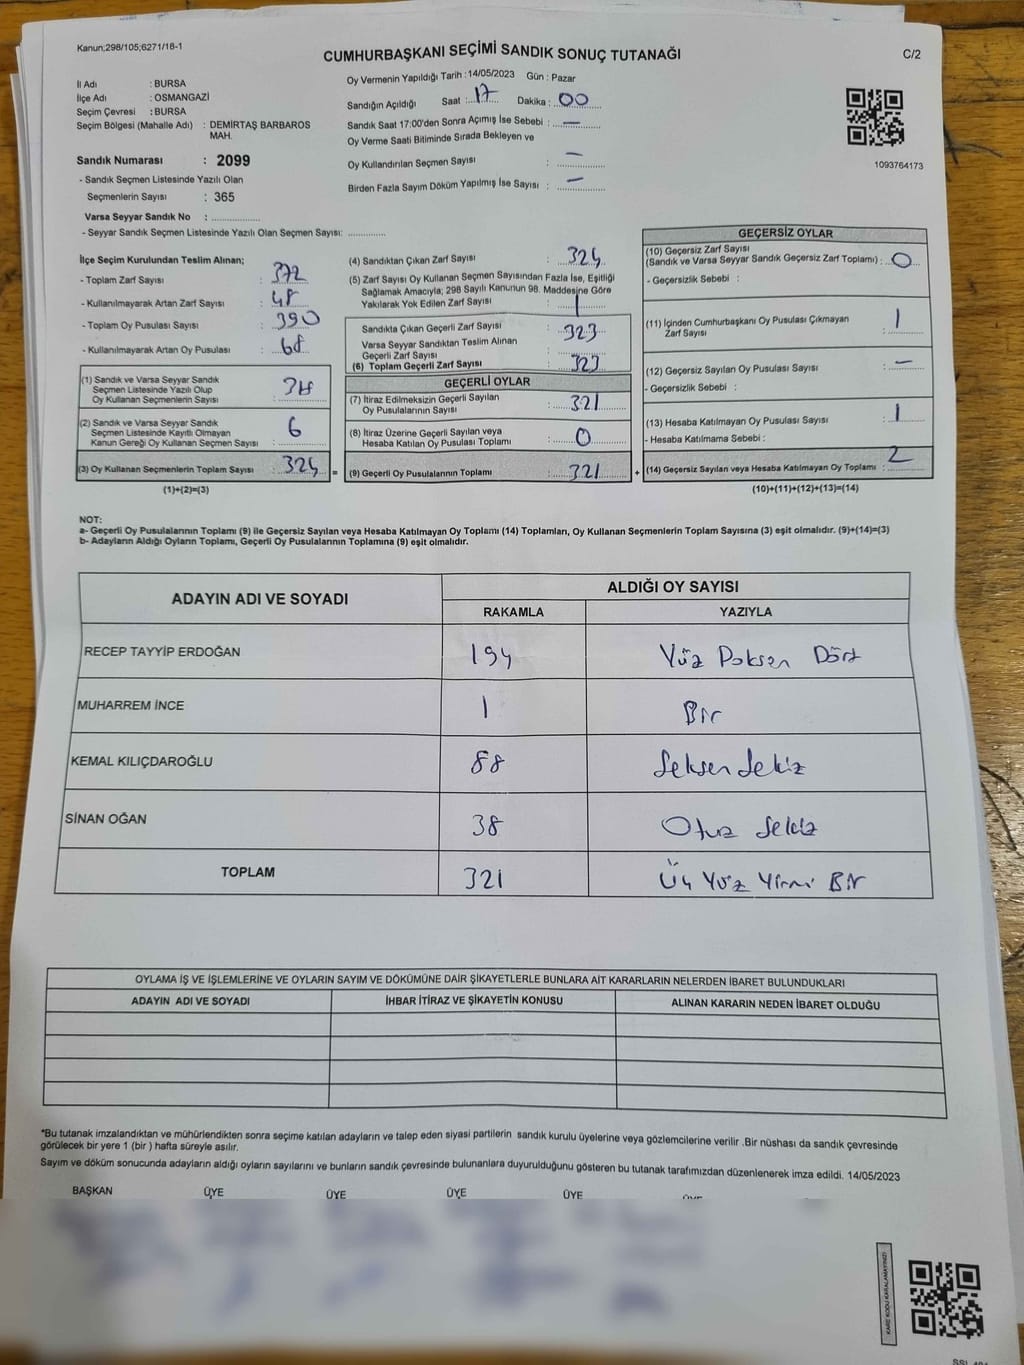 Kanun;298/105;6271/18-1
CUMHURBAŞKANI SEÇİMİ SANDIK SONUÇ TUTANAĞI
C/2
İl Adı : BURSA
İlçe Adı : OSMANGAZİ
Seçim Çevresi : BURSA
Seçim Bölgesi (Mahalle Adı) : DEMİRTAŞ BARBAROS
MAH.
Sandık Numarası : 2099
- Sandık Seçmen Listesinde Yazılı Olan
Seçmenlerin Sayısı : 365
Varsa Seyyar Sandık No : ..............
- Seyyar Sandık Seçmen Listesinde Yazılı Olan Seçmen Sayısı: ............
Oy Vermenin Yapıldığı Tarih : 14/05/2023 Gün : Pazar
Sandığın Açıldığı Saat : 17 Dakika : 00
Sandık Saat 17:00'den Sonra Açımış İse Sebebi : —
Oy Verme Saati Bitiminde Sırada Bekleyen ve
Oy Kullandırılan Seçmen Sayısı : —
Birden Fazla Sayım Döküm Yapılmış İse Sayısı : —
1093764173
İlçe Seçim Kurulundan Teslim Alınan;
- Toplam Zarf Sayısı : 372
- Kullanılmayarak Artan Zarf Sayısı : 48
- Toplam Oy Pusulası Sayısı : 390
- Kullanılmayarak Artan Oy Pusulası : 68
(1) Sandık ve Varsa Seyyar Sandık
Seçmen Listesinde Yazılı Olup
Oy Kullanan Seçmenlerin Sayısı :
(2) Sandık ve Varsa Seyyar Sandık
Seçmen Listesinde Kayıtlı Olmayan
Kanun Gereği Oy Kullanan Seçmen Sayısı : 6
(3) Oy Kullanan Seçmenlerin Toplam Sayısı : 324
(1)+(2)=(3)
(4) Sandıktan Çıkan Zarf Sayısı : 324
(5) Zarf Sayısı Oy Kullanan Seçmen Sayısından Fazla İse, Eşitliği
Sağlamak Amacıyla; 298 Sayılı Kanunun 98. Maddesine Göre
Yakılarak Yok Edilen Zarf Sayısı : 1
Sandıkta Çıkan Geçerli Zarf Sayısı : 323
Varsa Seyyar Sandıktan Teslim Alınan
Geçerli Zarf Sayısı :
(6) Toplam Geçerli Zarf Sayısı : 323
GEÇERLİ OYLAR
(7) İtiraz Edilmeksizin Geçerli Sayılan
Oy Pusulalarının Sayısı : 321
(8) İtiraz Üzerine Geçerli Sayılan veya
Hesaba Katılan Oy Pusulası Toplamı : 0
= (9) Geçerli Oy Pusulalarının Toplamı : 321 +
GEÇERSİZ OYLAR
(10) Geçersiz Zarf Sayısı
(Sandık ve Varsa Seyyar Sandık Geçersiz Zarf Toplamı) : 0
- Geçersizlik Sebebi :
(11) İçinden Cumhurbaşkanı Oy Pusulası Çıkmayan
Zarf Sayısı : 1
(12) Geçersiz Sayılan Oy Pusulası Sayısı : —
- Geçersizlik Sebebi :
(13) Hesaba Katılmayan Oy Pusulası Sayısı : 1
- Hesaba Katılmama Sebebi :
(14) Geçersiz Sayılan veya Hesaba Katılmayan Oy Toplamı : 2
(10)+(11)+(12)+(13)=(14)
NOT:
a- Geçerli Oy Pusulalarının Toplamı (9) ile Geçersiz Sayılan veya Hesaba Katılmayan Oy Toplamı (14) Toplamları, Oy Kullanan Seçmenlerin Toplam Sayısına (3) eşit olmalıdır. (9)+(14)=(3)
b- Adayların Aldığı Oyların Toplamı, Geçerli Oy Pusulalarının Toplamına (9) eşit olmalıdır.
ADAYIN ADI VE SOYADI
ALDIĞI OY SAYISI
RAKAMLA YAZIYLA
RECEP TAYYİP ERDOĞAN 194 Yüz Doksan Dört
MUHARREM İNCE 1 Bir
KEMAL KILIÇDAROĞLU 88 Seksen Sekiz
SİNAN OĞAN 38 Otuz Sekiz
TOPLAM 321 Üç Yüz Yirmi Bir
OYLAMA İŞ VE İŞLEMLERİNE VE OYLARIN SAYIM VE DÖKÜMÜNE DAİR ŞİKAYETLERLE BUNLARA AİT KARARLARIN NELERDEN İBARET BULUNDUKLARI
ADAYIN ADI VE SOYADI İHBAR İTİRAZ VE ŞİKAYETİN KONUSU ALINAN KARARIN NEDEN İBARET OLDUĞU
*Bu tutanak imzalandıktan ve mühürlendikten sonra seçime katılan adayların ve talep eden siyasi partilerin sandık kurulu üyelerine veya gözlemcilerine verilir .Bir nüshası da sandık çevresinde
görülecek bir yere 1 (bir ) hafta süreyle asılır.
Sayım ve döküm sonucunda adayların aldığı oyların sayılarını ve bunların sandık çevresinde bulunanlara duyurulduğunu gösteren bu tutanak tarafımızdan düzenlenerek imza edildi. 14/05/2023
BAŞKAN ÜYE ÜYE ÜYE ÜYE
KARE KODU KARALAMAYINIZ!